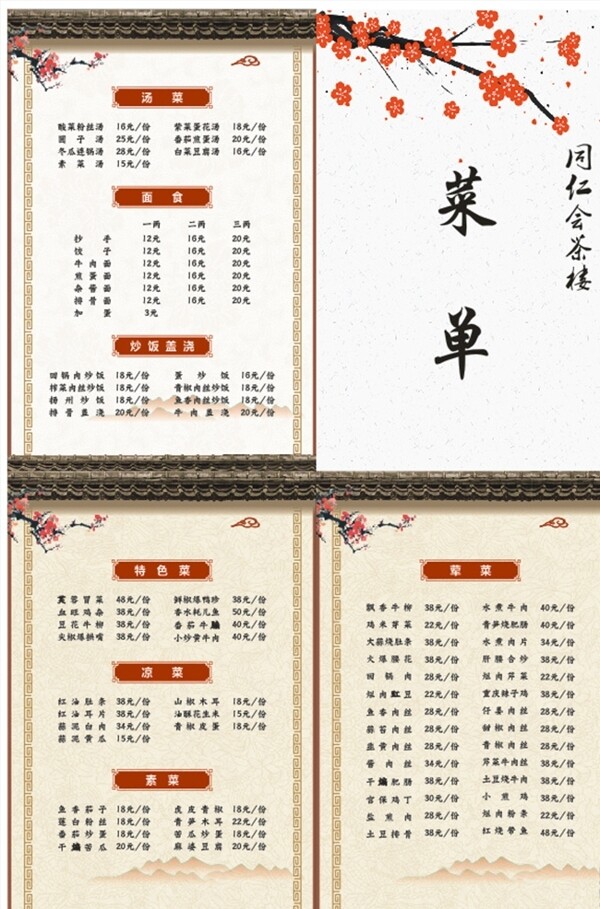 汤 菜
酸菜粉丝汤 16元/份 紫菜蛋花汤 18元/份
圆子汤 25元/份 番茄煎蛋汤 20元/份
冬瓜连锅汤 28元/份 白菜豆腐汤 16元/份
素菜汤 15元/份
面 食
一两 二两 三两
抄手 12元 16元 20元
饺子 12元 16元 20元
牛肉面 12元 16元 20元
煎蛋面 12元 16元 20元
杂酱面 12元 16元 20元
排骨面 12元 16元 20元
加蛋 3元
炒饭盖浇
回锅肉炒饭 18元/份 蛋炒饭 16元/份
榨菜肉丝炒饭 18元/份 青椒肉丝炒饭 18元/份
扬州炒饭 18元/份 鱼香肉丝炒饭 18元/份
排骨盖浇 20元/份 牛肉盖浇 20元/份
同仁会茶楼
菜单
特色菜
芙蓉冒菜 48元/份 鲜椒爆鸭珍 38元/份
血旺鸡杂 38元/份 香水耗儿鱼 50元/份
豆花牛柳 38元/份 番茄牛腩 40元/份
尖椒爆拱嘴 38元/份 小炒黄牛肉 40元/份
凉 菜
红油肚条 38元/份 山椒木耳 18元/份
红油耳片 38元/份 油酥花生米 15元/份
蒜泥白肉 34元/份 青椒皮蛋 18元/份
蒜泥黄瓜 15元/份
素 菜
鱼香茄子 18元/份 虎皮青椒 18元/份
莲白粉丝 18元/份 青笋木耳 22元/份
番茄炒蛋 18元/份 苦瓜炒蛋 18元/份
干煸苦瓜 20元/份 麻婆豆腐 20元/份
荤 菜
飘香牛柳 38元/份 水煮牛肉 40元/份
鸡米芽菜 22元/份 青笋烧肥肠 40元/份
大蒜烧肚条 38元/份 水煮肉片 34元/份
火爆腰花 38元/份 肝腰合炒 38元/份
回锅肉 28元/份 烂肉芹菜 22元/份
烂肉豇豆 22元/份 重庆辣子鸡 38元/份
鱼香肉丝 28元/份 仔姜肉丝 28元/份
蒜苔肉丝 28元/份 甜椒肉丝 28元/份
韭黄肉丝 28元/份 青椒肉丝 28元/份
酱肉丝 34元/份 芹菜牛肉丝 34元/份
干煸肥肠 38元/份 土豆烧牛肉 38元/份
宫保鸡丁 30元/份 小煎鸡 38元/份
盐煎肉 28元/份 烂肉粉条 22元/份
土豆排骨 38元/份 红烧带鱼 48元/份